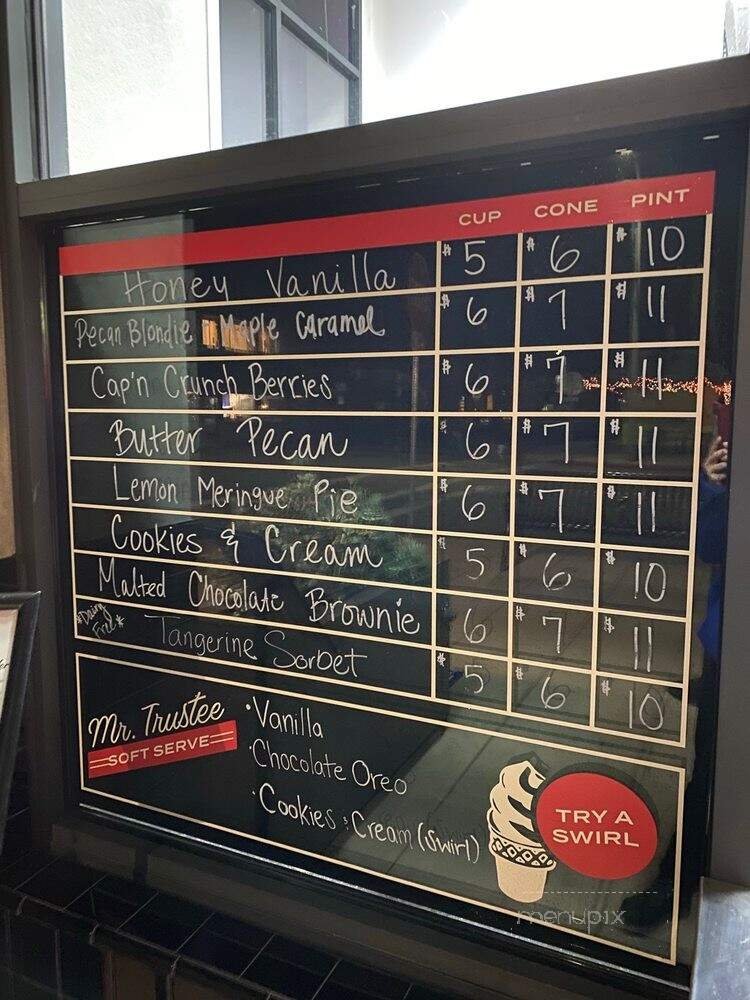 CUP CONE PINT
Honey Vanilla $5 $6 $10
Pecan Blondie n Maple Caramel $6 $7 $11
Cap'n Crunch Berries $6 $7 $11
Butter Pecan $6 $7 $11
Lemon Meringue Pie $6 $7 $11
Cookies & Cream $5 $6 $10
Malted Chocolate Brownie $6 $7 $11
*Dairy Free* Tangerine Sorbet $5 $6 $10
Mr. Trustee
SOFT SERVE
• Vanilla
• Chocolate Oreo
• Cookies & Cream (Swirl)
TRY A
SWIRL
menupix